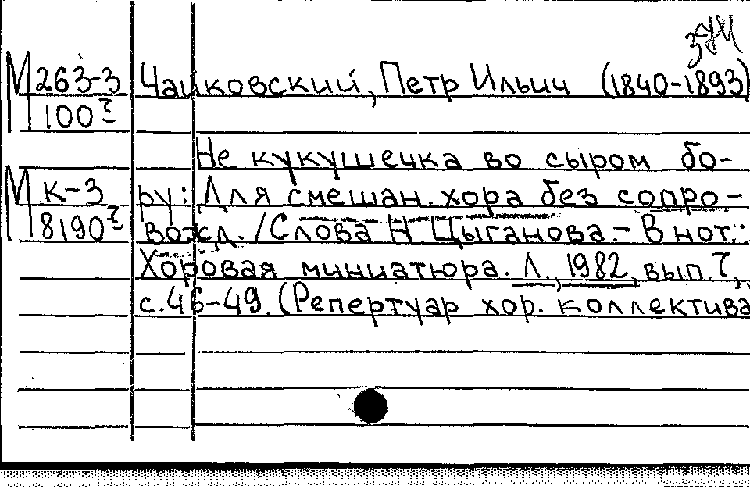 зум
М 263-3 Чайковский, Петр Ильич (1840-1893)
100?
Не кукушечка во сыром бо-
М К-3 ру: Для смешан. хора без сопро-
8190? вожд. /Слова Н Цыганова.- В нот.:
Хоровая миниатюра. Л., 1982, вып. 7,
с. 46-49. (Репертуар хор. коллектива